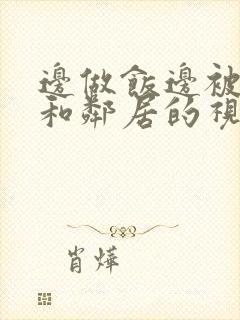 邊做飯邊被
和鄰居的視
肖燁